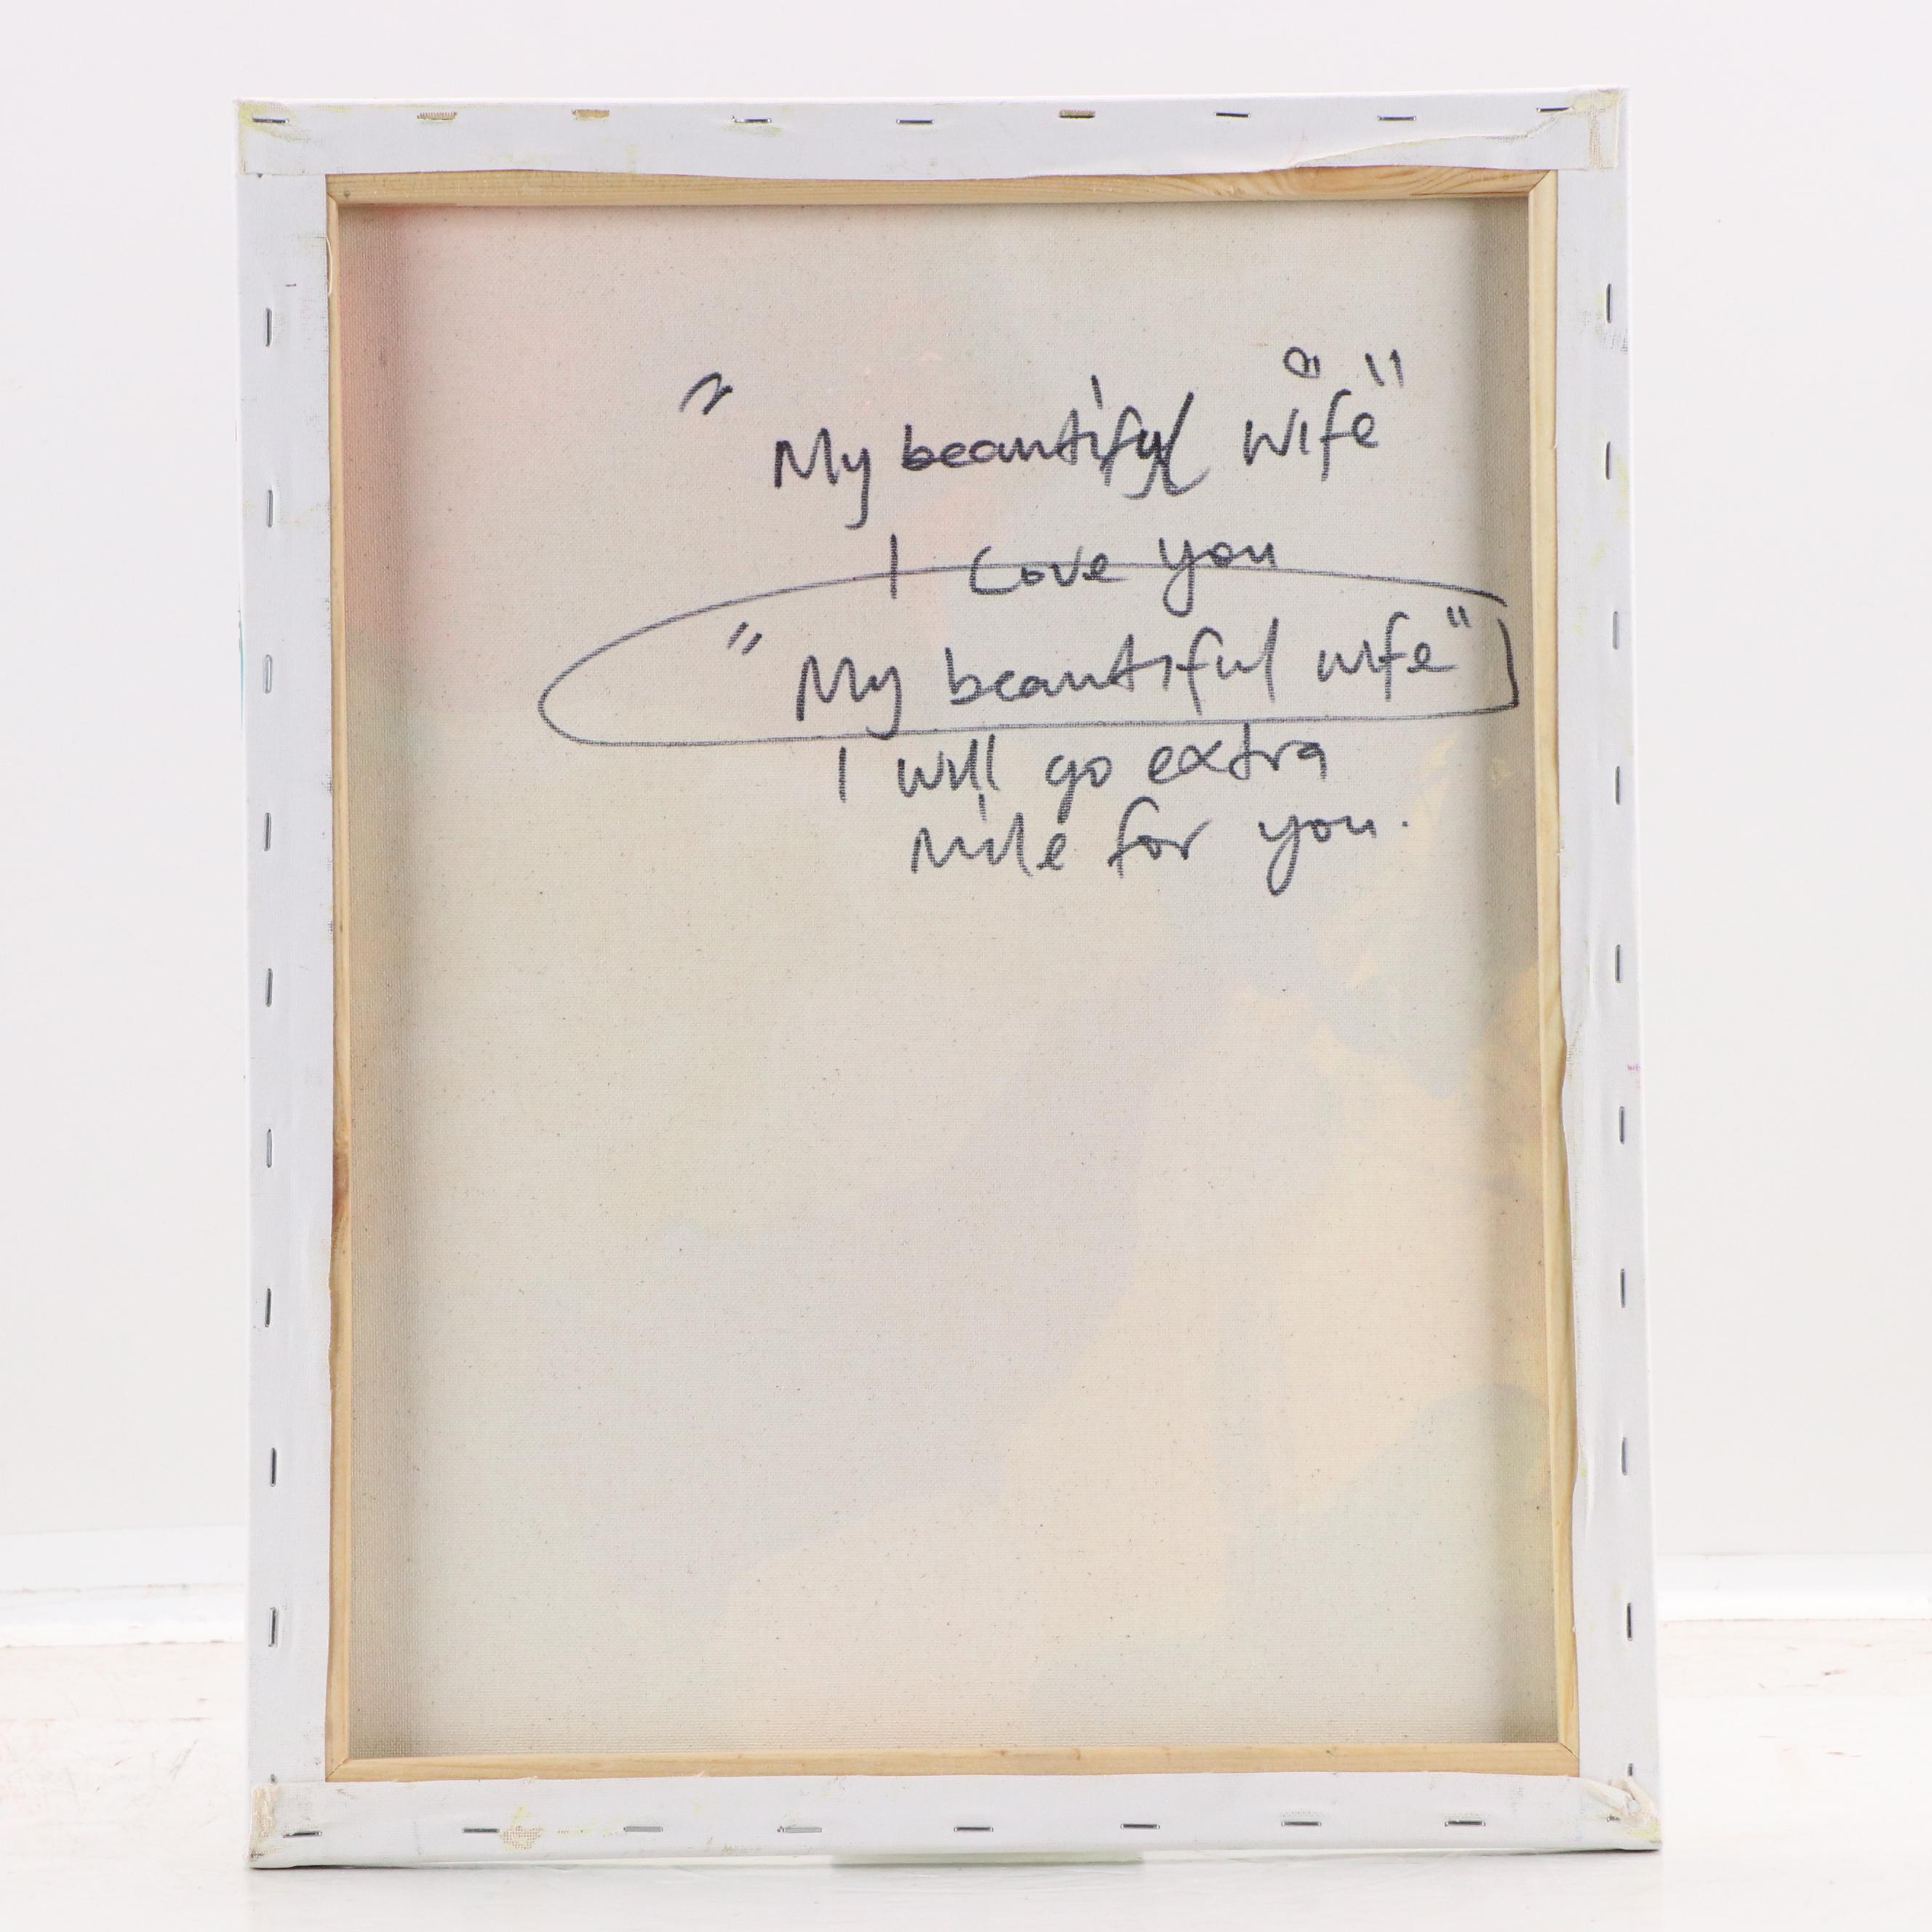 "My beautiful wife"
I Love you
"My beautiful wife"
I will go extra
mile for you.